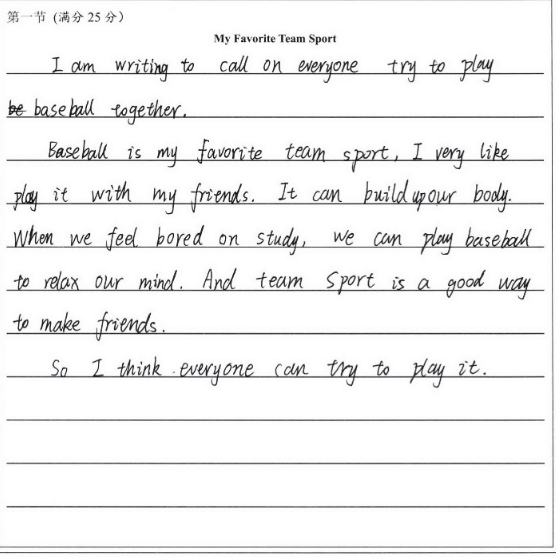 第一节 (满分 25 分)
My Favorite Team Sport
I am writing to call on everyone try to play
be baseball together.
Baseball is my favorite team sport, I very like
play it with my friends. It can build up our body.
When we feel bored on study, we can play baseball
to relax our mind. And team sport is a good way
to make friends.
So I think everyone can try to play it.